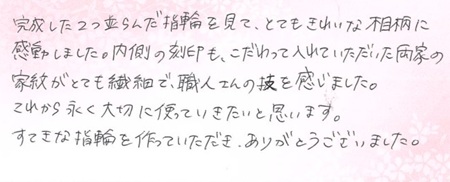 完成した2つ並らんだ指輪を見て、とてもきれいな相柄に
感動しました。内側の刻印も、こだわって入れていただいた両家の
家紋がとても繊細で、職人さんの技を感じました。
これから永く大切に使っていきたいと思います。
すてきな指輪を作っていただき、ありがとうございました。